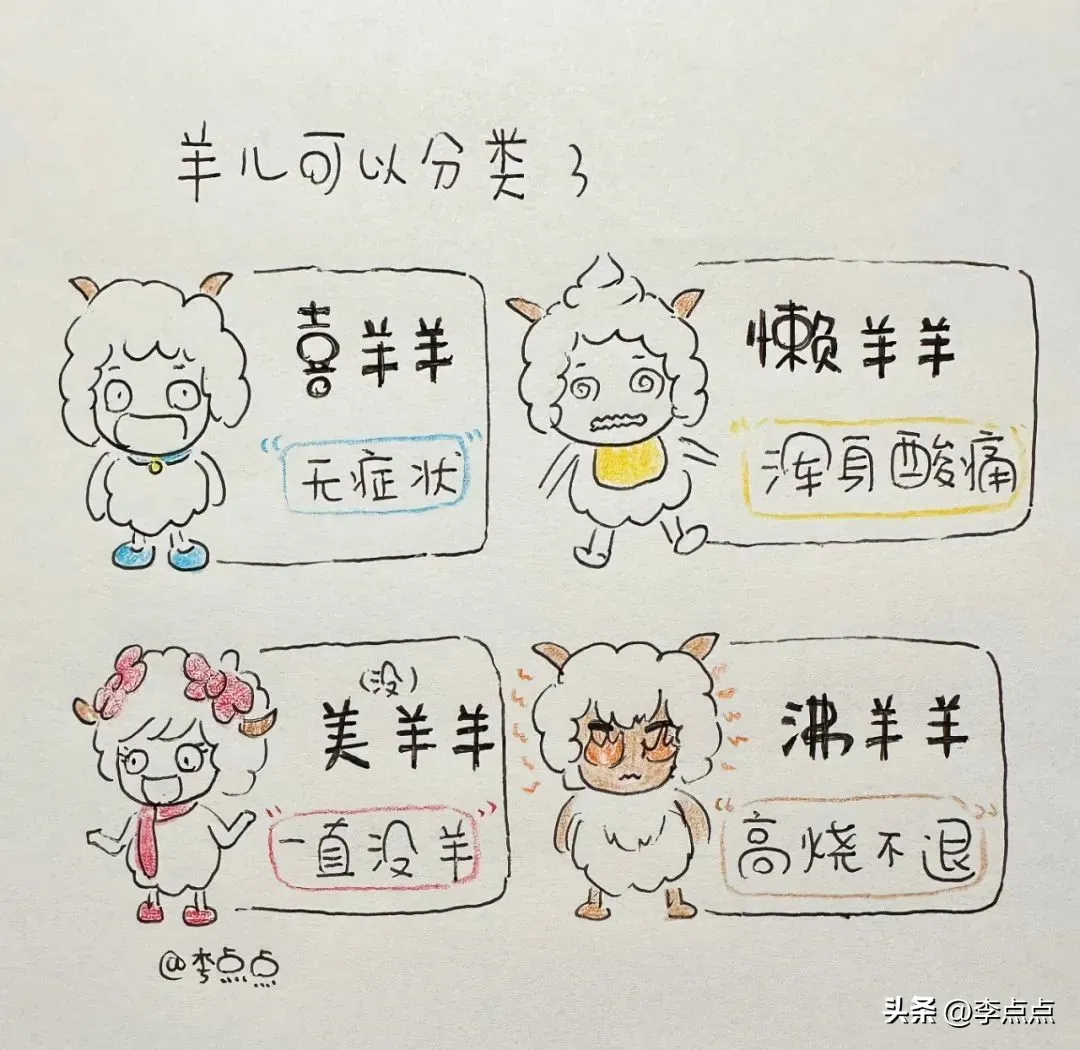 羊儿可以分类了
喜羊羊
“无症状”
懒羊羊
“浑身酸痛”
(没)
美羊羊
“一直没羊”
沸羊羊
“高烧不退”
@李点点
头条 @李点点